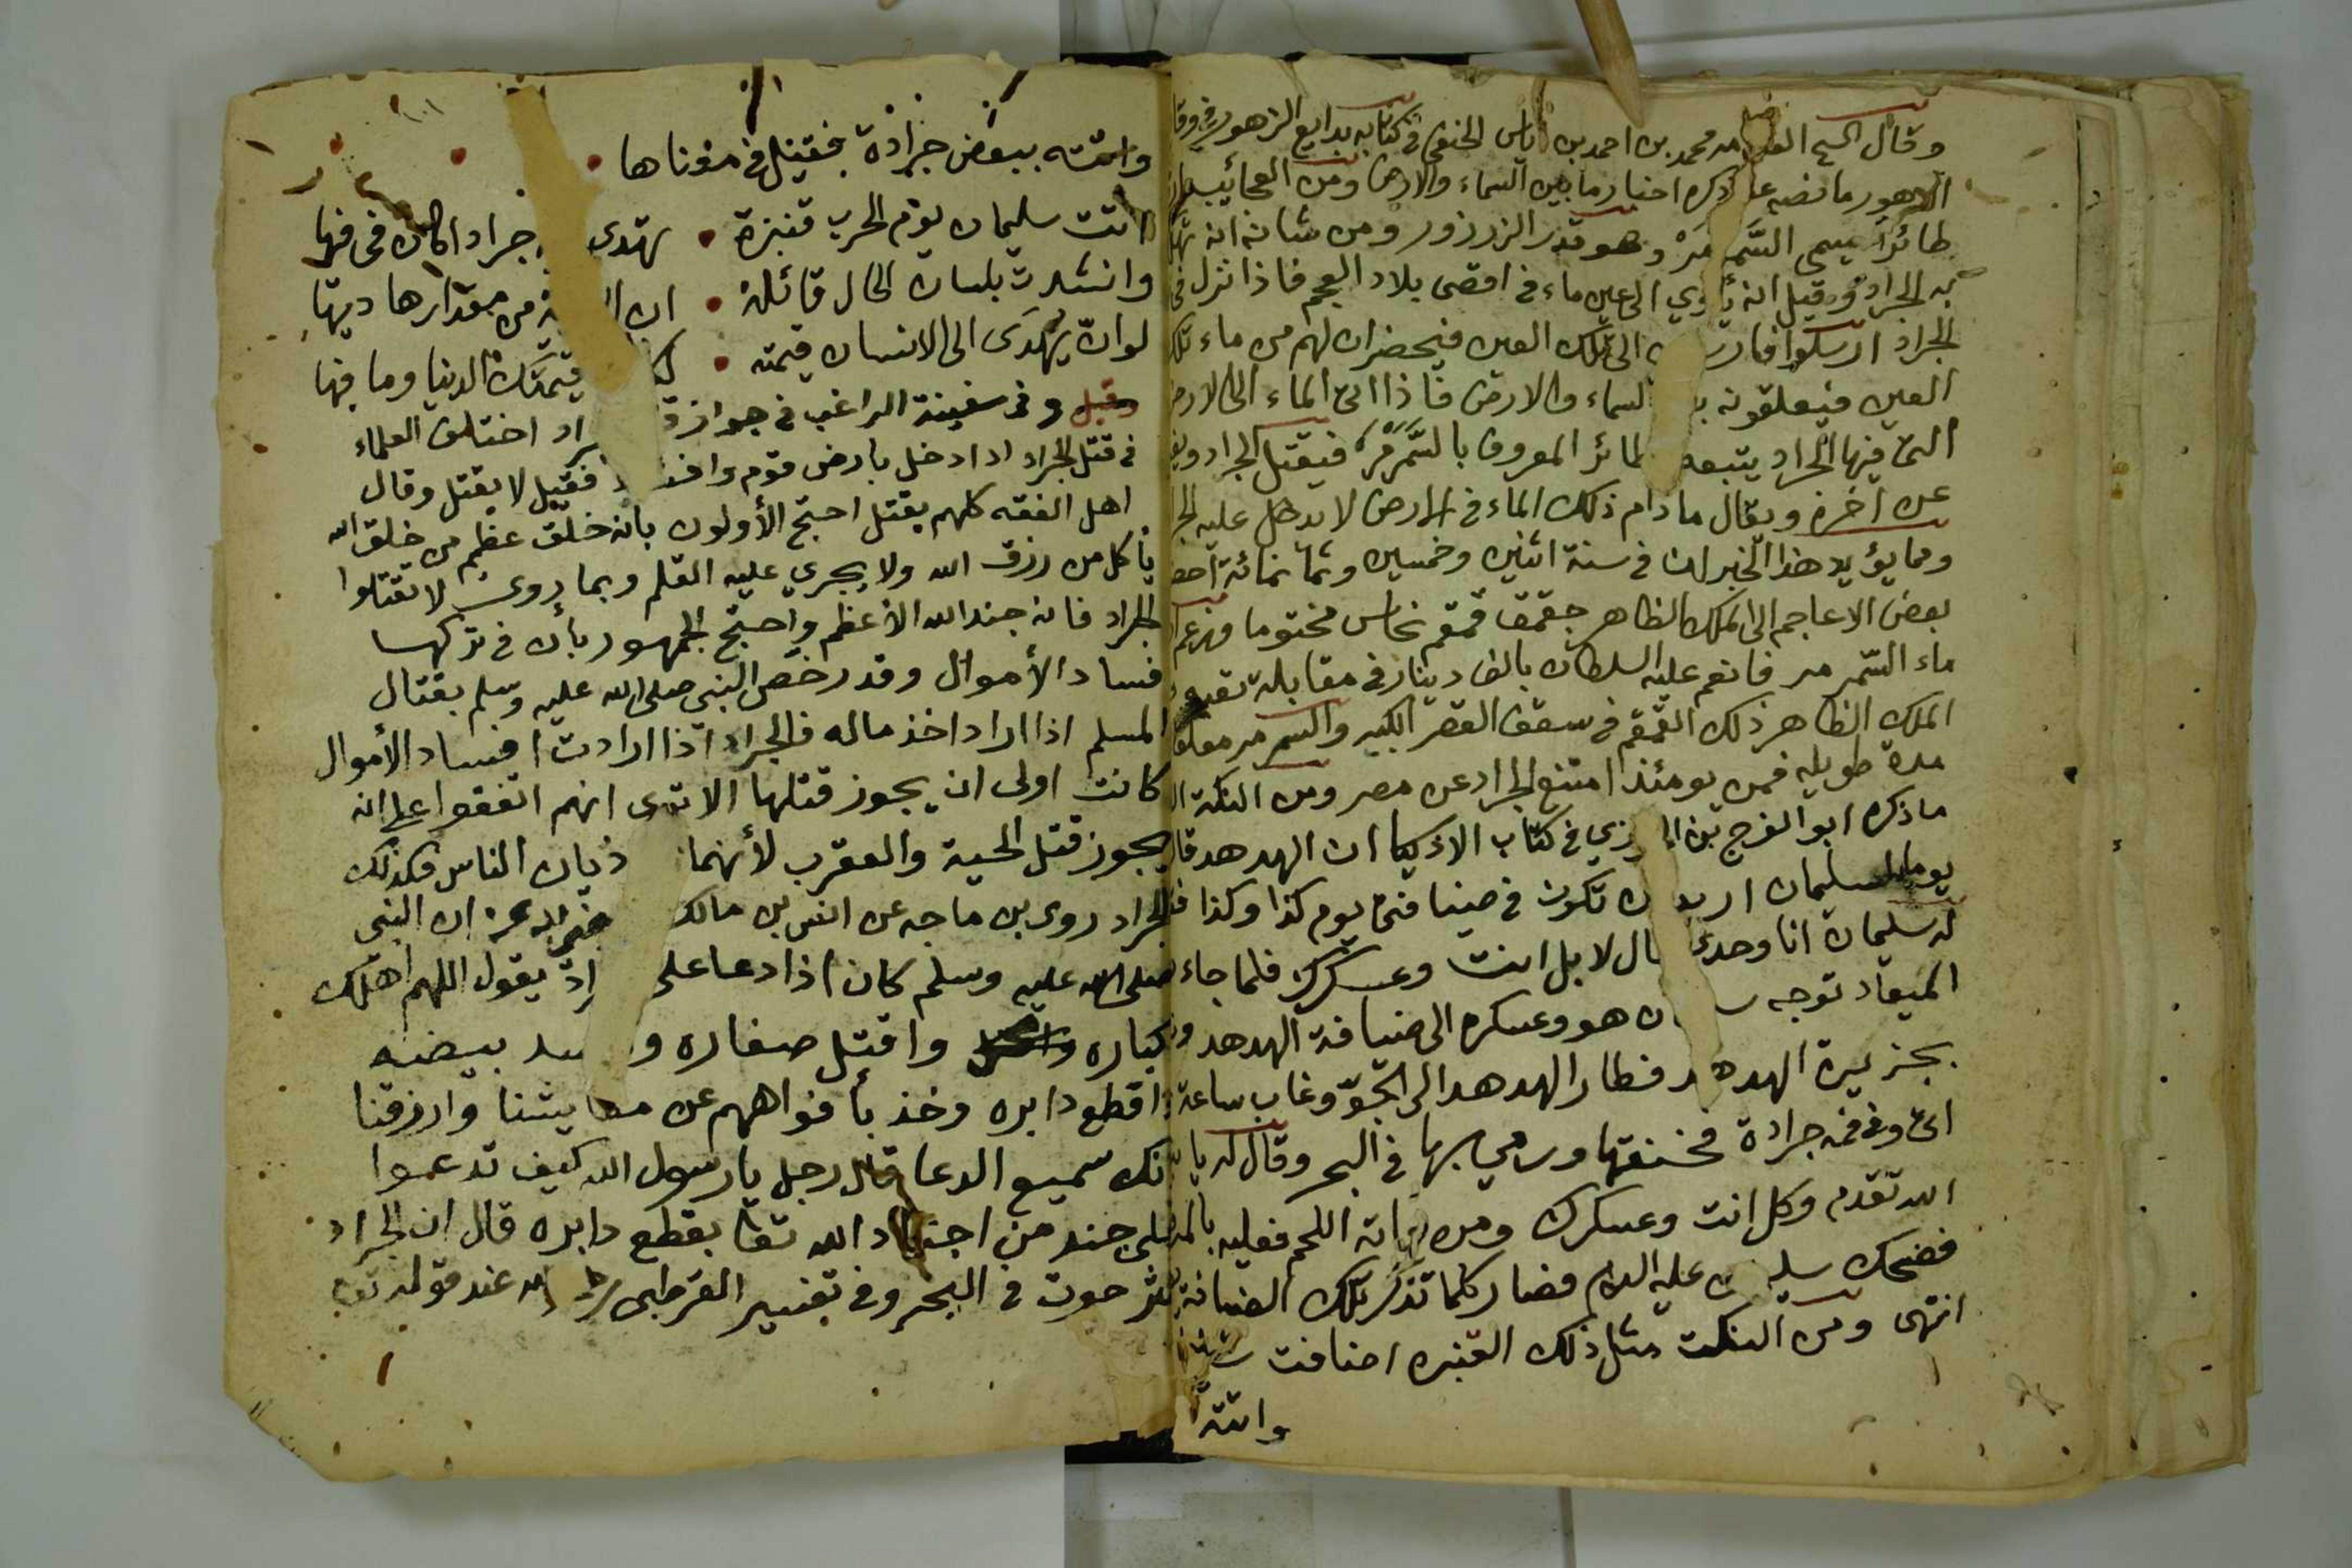 وقال الشيخ العلامه محمد بن احمد بن اياس الحنفي في كتابه بدايع الزهور في وقا
الدهور ما نصه ذكره اخبار ما بين السماء والارض ومن العجائب
طائرا يسمى السمرمر وهو قدر الزرزور ومن شانه انه
به الجراد وقيل انه يأوي الى عين ماء في اقصى بلاد العجم فاذا نزل في
الجراد ارسلوا الى تلك العين فيحضران لهم من ماء تلك
العين فيعلقونه السماء والارض فاذا اتى الماء الى الارض
التي فيها الجراد يتبعه طائر المعروف بالسمرمر فيقتل الجراد
عن اخره ويقال ما دام ذلك الماء في الارض لا يدخل عليه
ومما يؤيد هذا الخبر ان في سنة اثنين وخمسين وثمانمائة احضر
بعض الاعاجم الى الملك الظاهر جقمق قمقم نحاس مختوما فزعم
ماء السمرمر فانعم عليه السلطان بالف دينار في مقابلة
الملك الظاهر ذلك القمقم في سقف القصر الكبير والسمرمر معلقا
مدة طويله فمن يومئذ امتنع الجراد عن مصر ومن النكته
ما ذكره ابو الفرج بن الجوزي في كتاب الاذكيا ان الهدهد قال
يوما لسليمان اريد ان تكون في ضيافتي يوم كذا وكذا
له سليمان انا وحدي قال لا بل انت وعسكرك فلما جاء
الميعاد توجه سليمان هو وعسكره الى ضيافة الهدهد
بجزيرة الهدهد فطار الهدهد الى الجو وغاب ساعة
اتى وفي فمه جرادة فخنقها ورمى بها في البحر وقال له يا
الله تقدم وكل انت وعسكرك ومن فاته اللحم فعليه بالمر
فضحك سليمان عليه السلام فصار كلما تذكر تلك الضيافة
انتهى ومن النكت مثل ذلك القنبره اضافت
واتته
واتته ببعض جرادة فقيل في معناها
اتت سليمان يوم الحرب قنبرة • تهدى جراد كان في فيها
وانشدت بلسان الحال قائلة • ان من مقدارها ديتها
لو ان يهدى الى الانسان قيمته • قيمتك الدنيا وما فيها
وقيل وفي سفينة الراغب في جواز اختلف العلماء
في قتل الجراد اذا دخل بارض قوم فقيل لا يقتل وقال
اهل الفقه كلهم يقتل احتج الأولون بأنه خلق عظيم من خلق الله
يأكل من رزق الله ولا يجري عليه القلم وبما روي لا تقتلوا
الجراد فانه جند الله الأعظم واحتج الجمهور بأن في تركها
فساد الأموال وقد رخص النبي صلى الله عليه وسلم بقتال
المسلم اذا اراد اخذ ماله فالجراد اذا ارادت افساد الأموال
كانت اولى ان يجوز قتلها الا ترى انهم اتفقوا على انه
يجوز قتل الحية والعقرب لأنهما يؤذيان الناس فكذلك
الجراد روى بن ماجه عن انس بن مالك ان النبي
صلى الله عليه وسلم كان اذا دعا على الجراد يقول اللهم اهلك
كباره واقتل صغاره وافسد بيضه
واقطع دابره وخذ بأفواههم عن معايشنا وارزقنا
انك سميع الدعا قال رجل يا رسول الله كيف تدعوا
على جند من اجناد الله تعا بقطع دابره قال ان الجراد
نثر حوت في البحر وفي تفسير القرطبى رحمه الله عند قوله تع